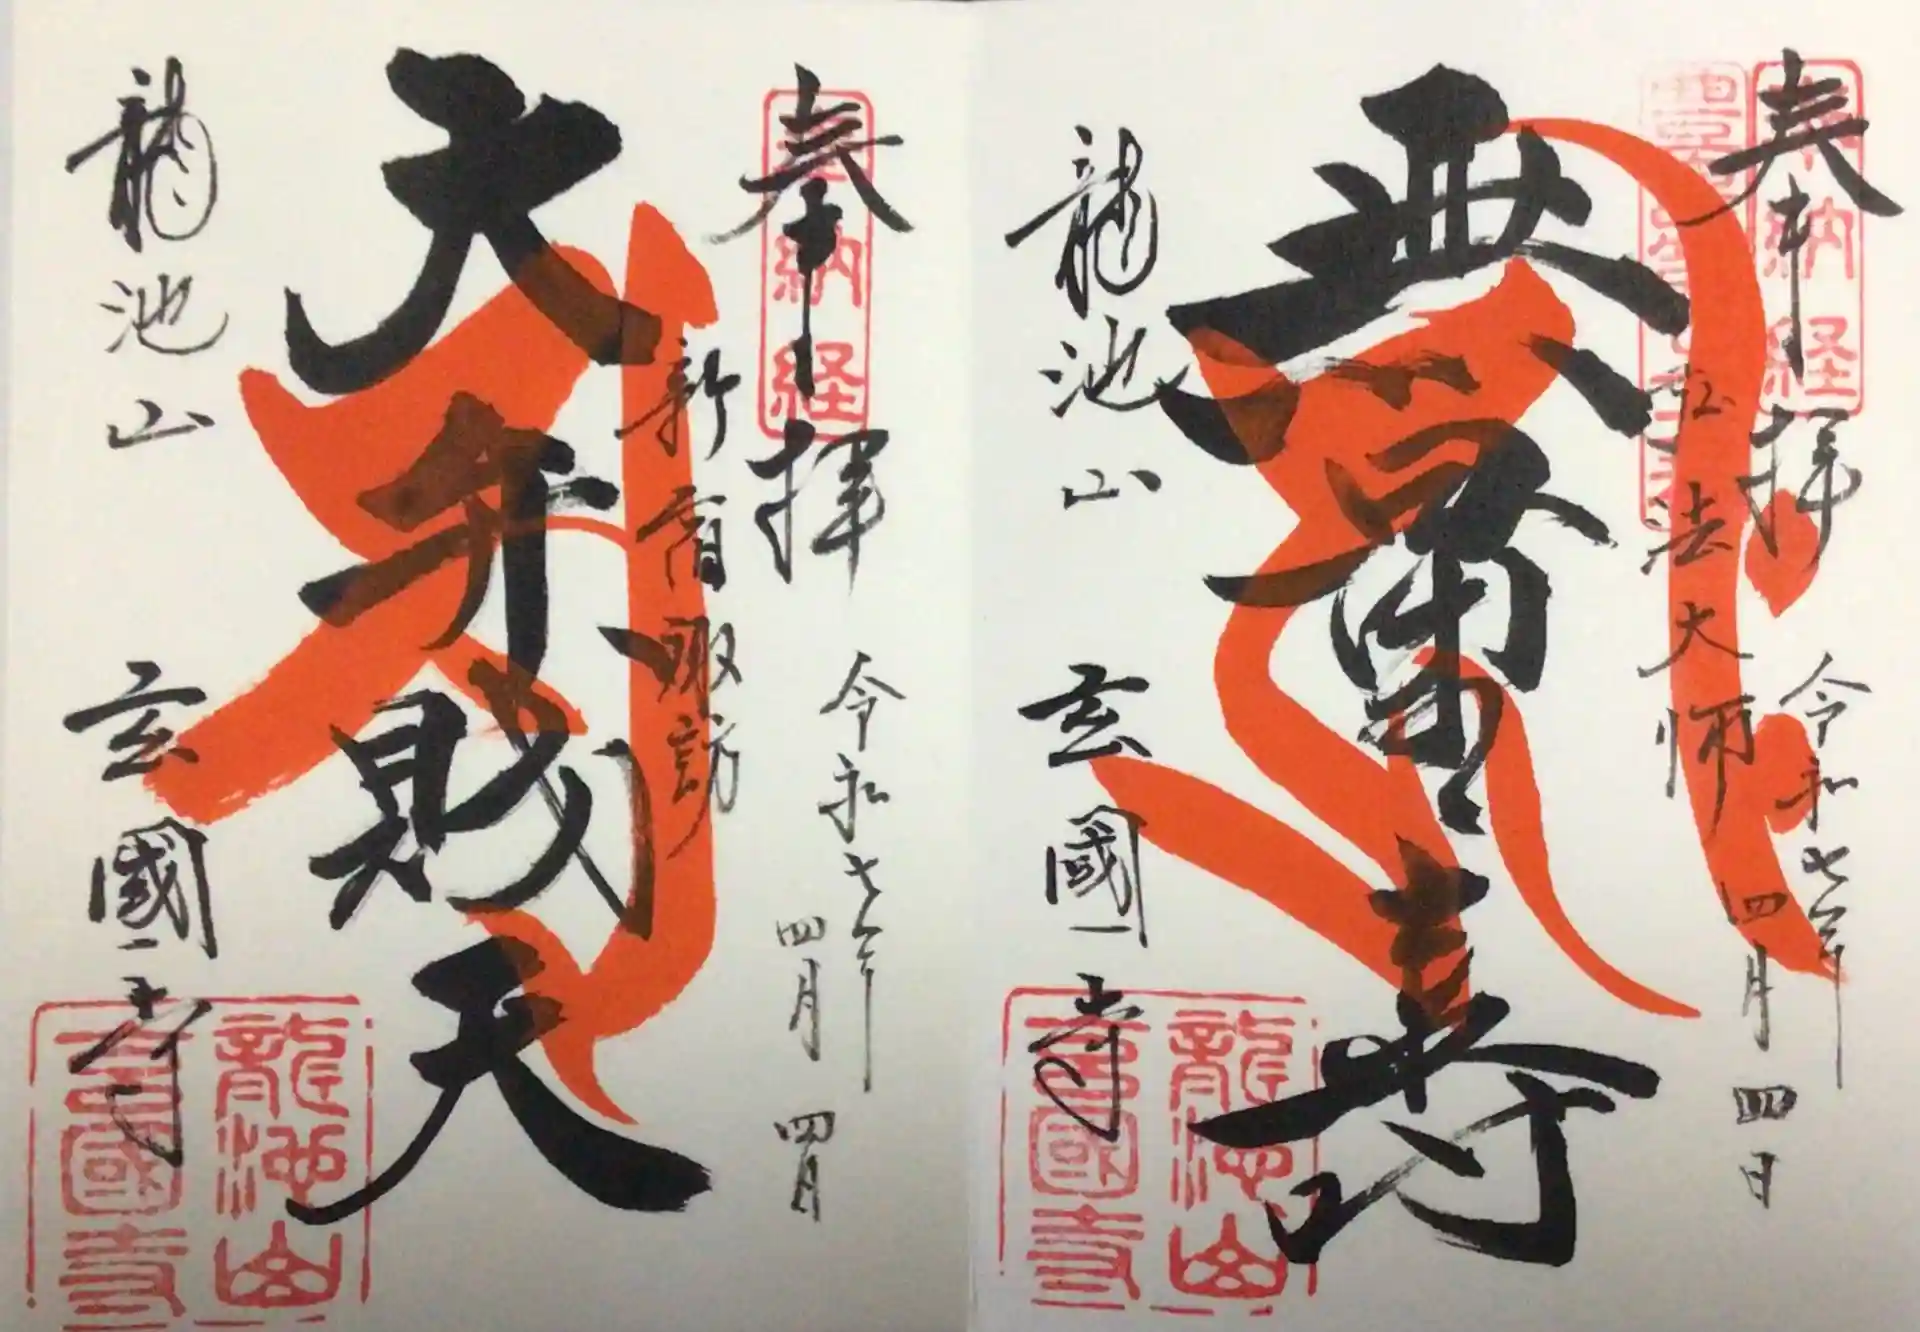 奉拝
令和七年
四月四日
弘法大師
無量壽
龍池山
玄國寺
奉納経
龍池山
玄國寺
奉拝
令和七年
四月四日
新宿諏訪
大弁財天
龍池山
玄國寺
奉納経
龍池山
玄國寺